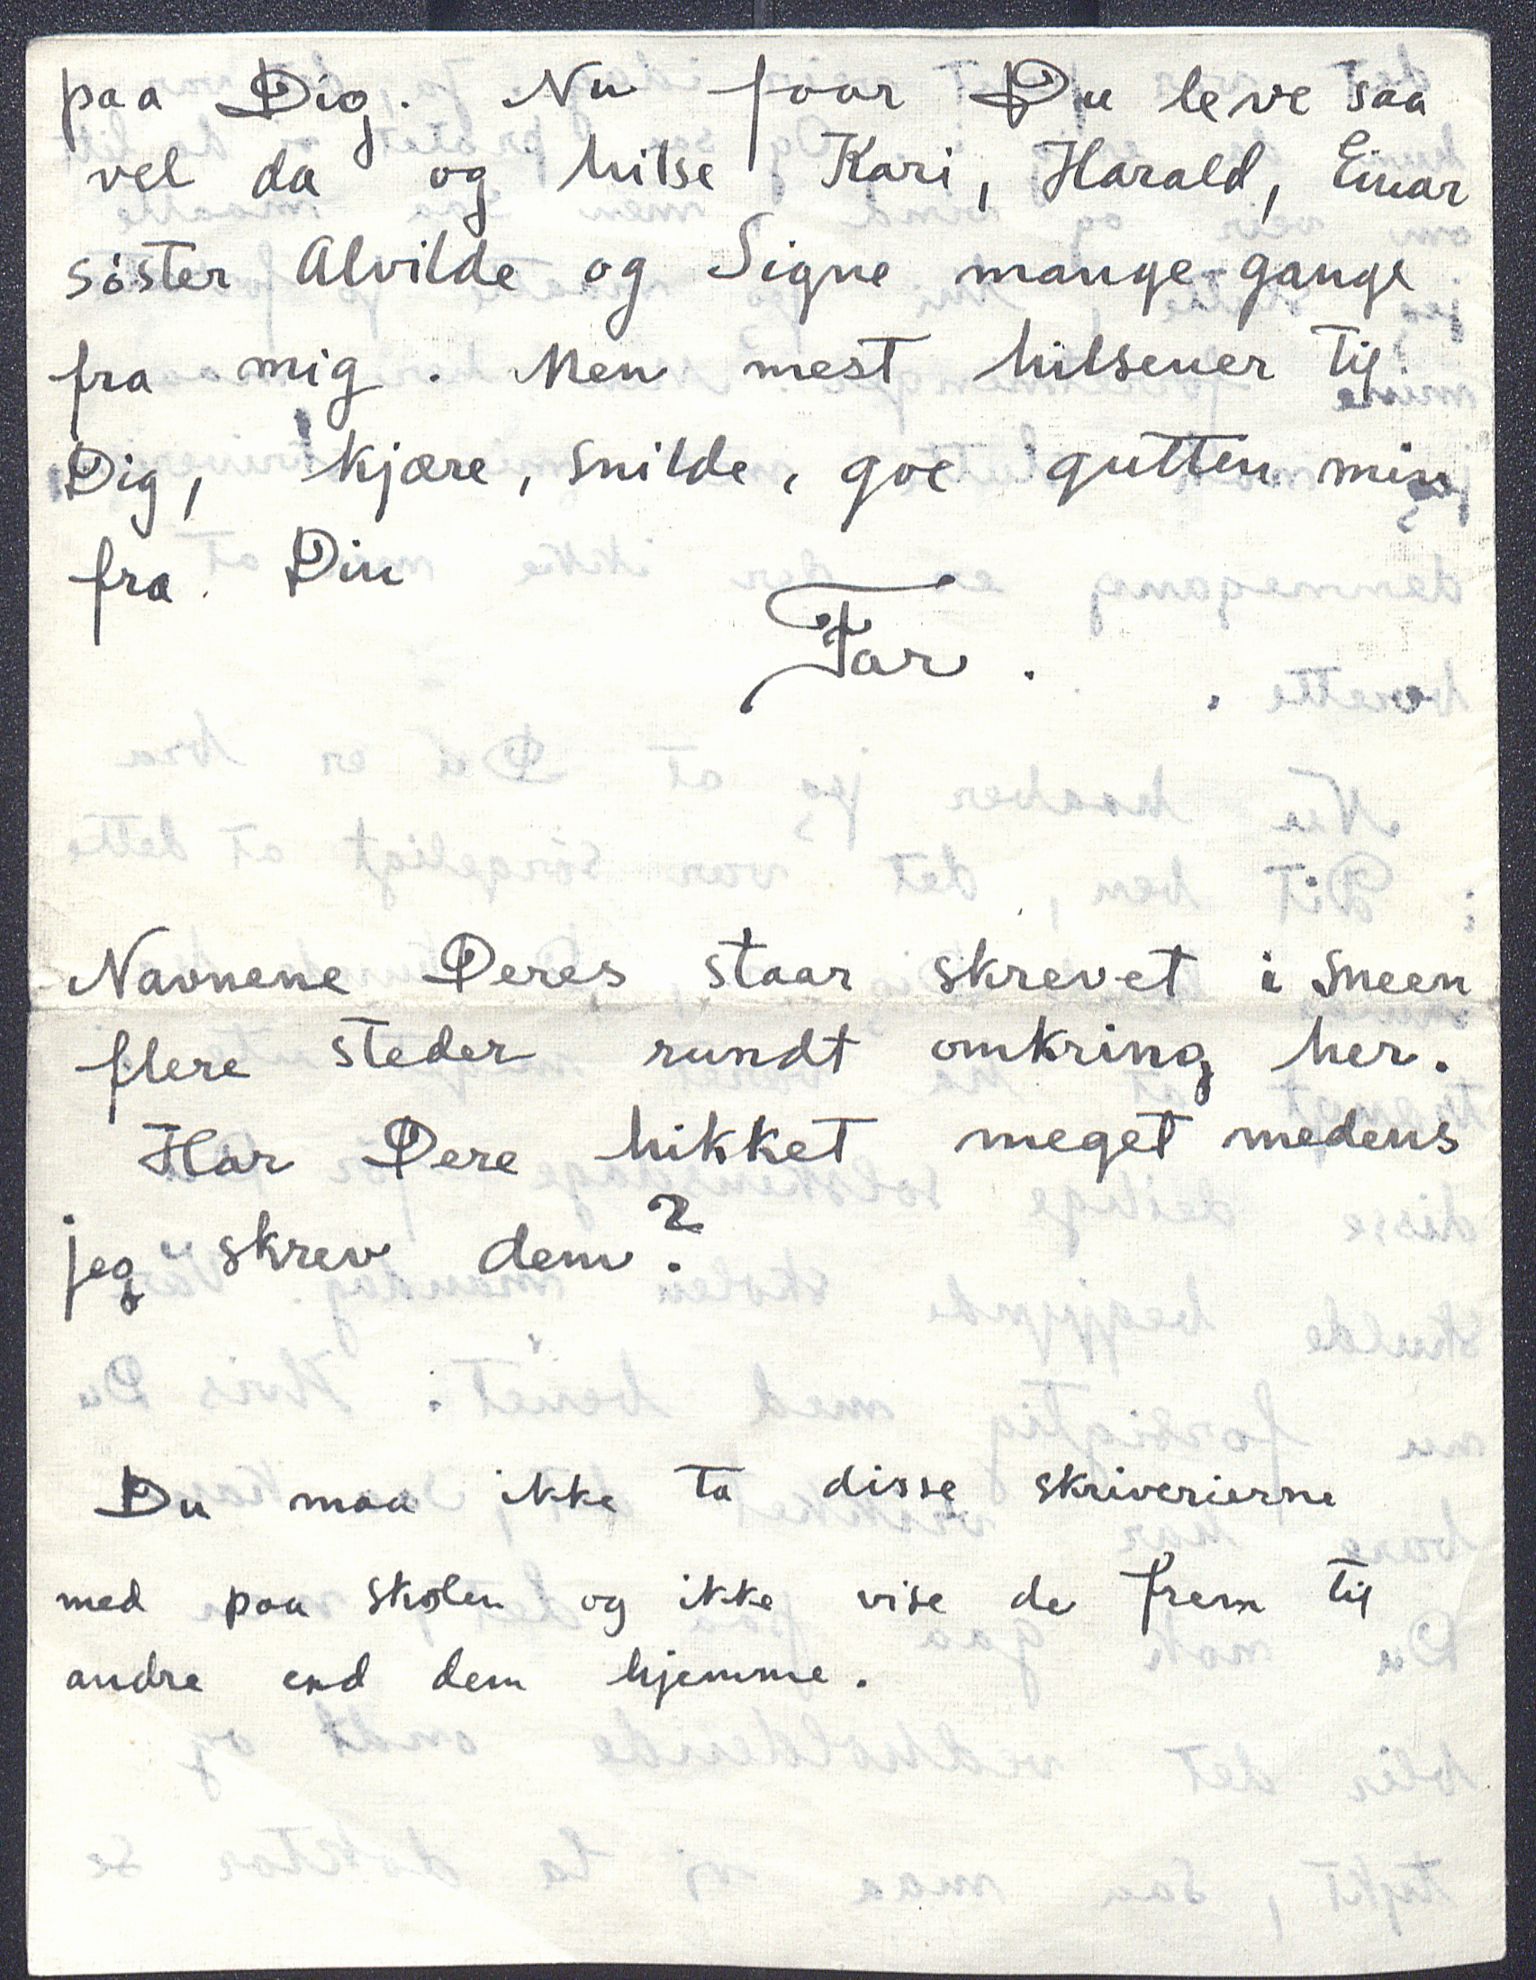 paa Dig. Nu faar Du leve saa
vel da og hilse Kari, Harald, Einar
søster Alvilde og Signe mange gange
fra mig. Men mest hilsener til
Dig, kjære, snilde, goe gutten min
fra Din
Far.
Navnene Deres staar skrevet i sneen
flere steder rundt omkring her.
Har Dere hikket meget medens
jeg skrev dem?
Du maa ikke ta disse skriverierne
med paa skolen og ikke vise de frem til
andre end dem hjemme.